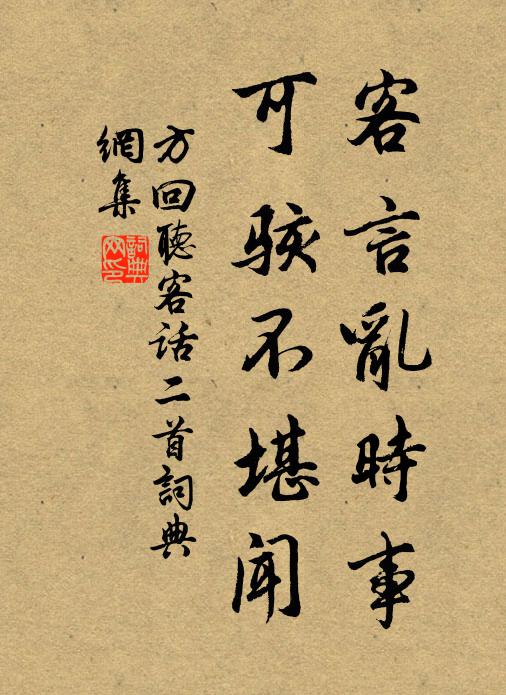 客言亂時事
可駭不堪聞
方回聽客话二首詞典
網集
詞典
网印